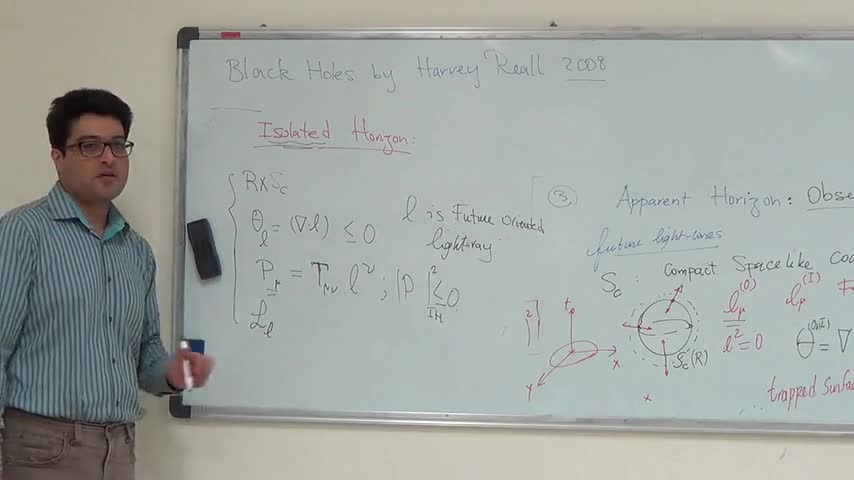 Black Holes by Harvey Reall 2008
Isolated Horizon:
R×Sc
θ_l = (∇·l) ≤ 0
l is Future Oriented
light-ray
P_μ = T_μν l^ν ; |P|² ≤ 0
IH
ℒ_l
3
Apparent Horizon: Obse
future light-cones
Sc : Compact Spacelike
l_μ^(O) l_μ^(I)
l² = 0
θ^(O,I) = ∇
Sc(R)
trapped Surfac
t
x
y
x